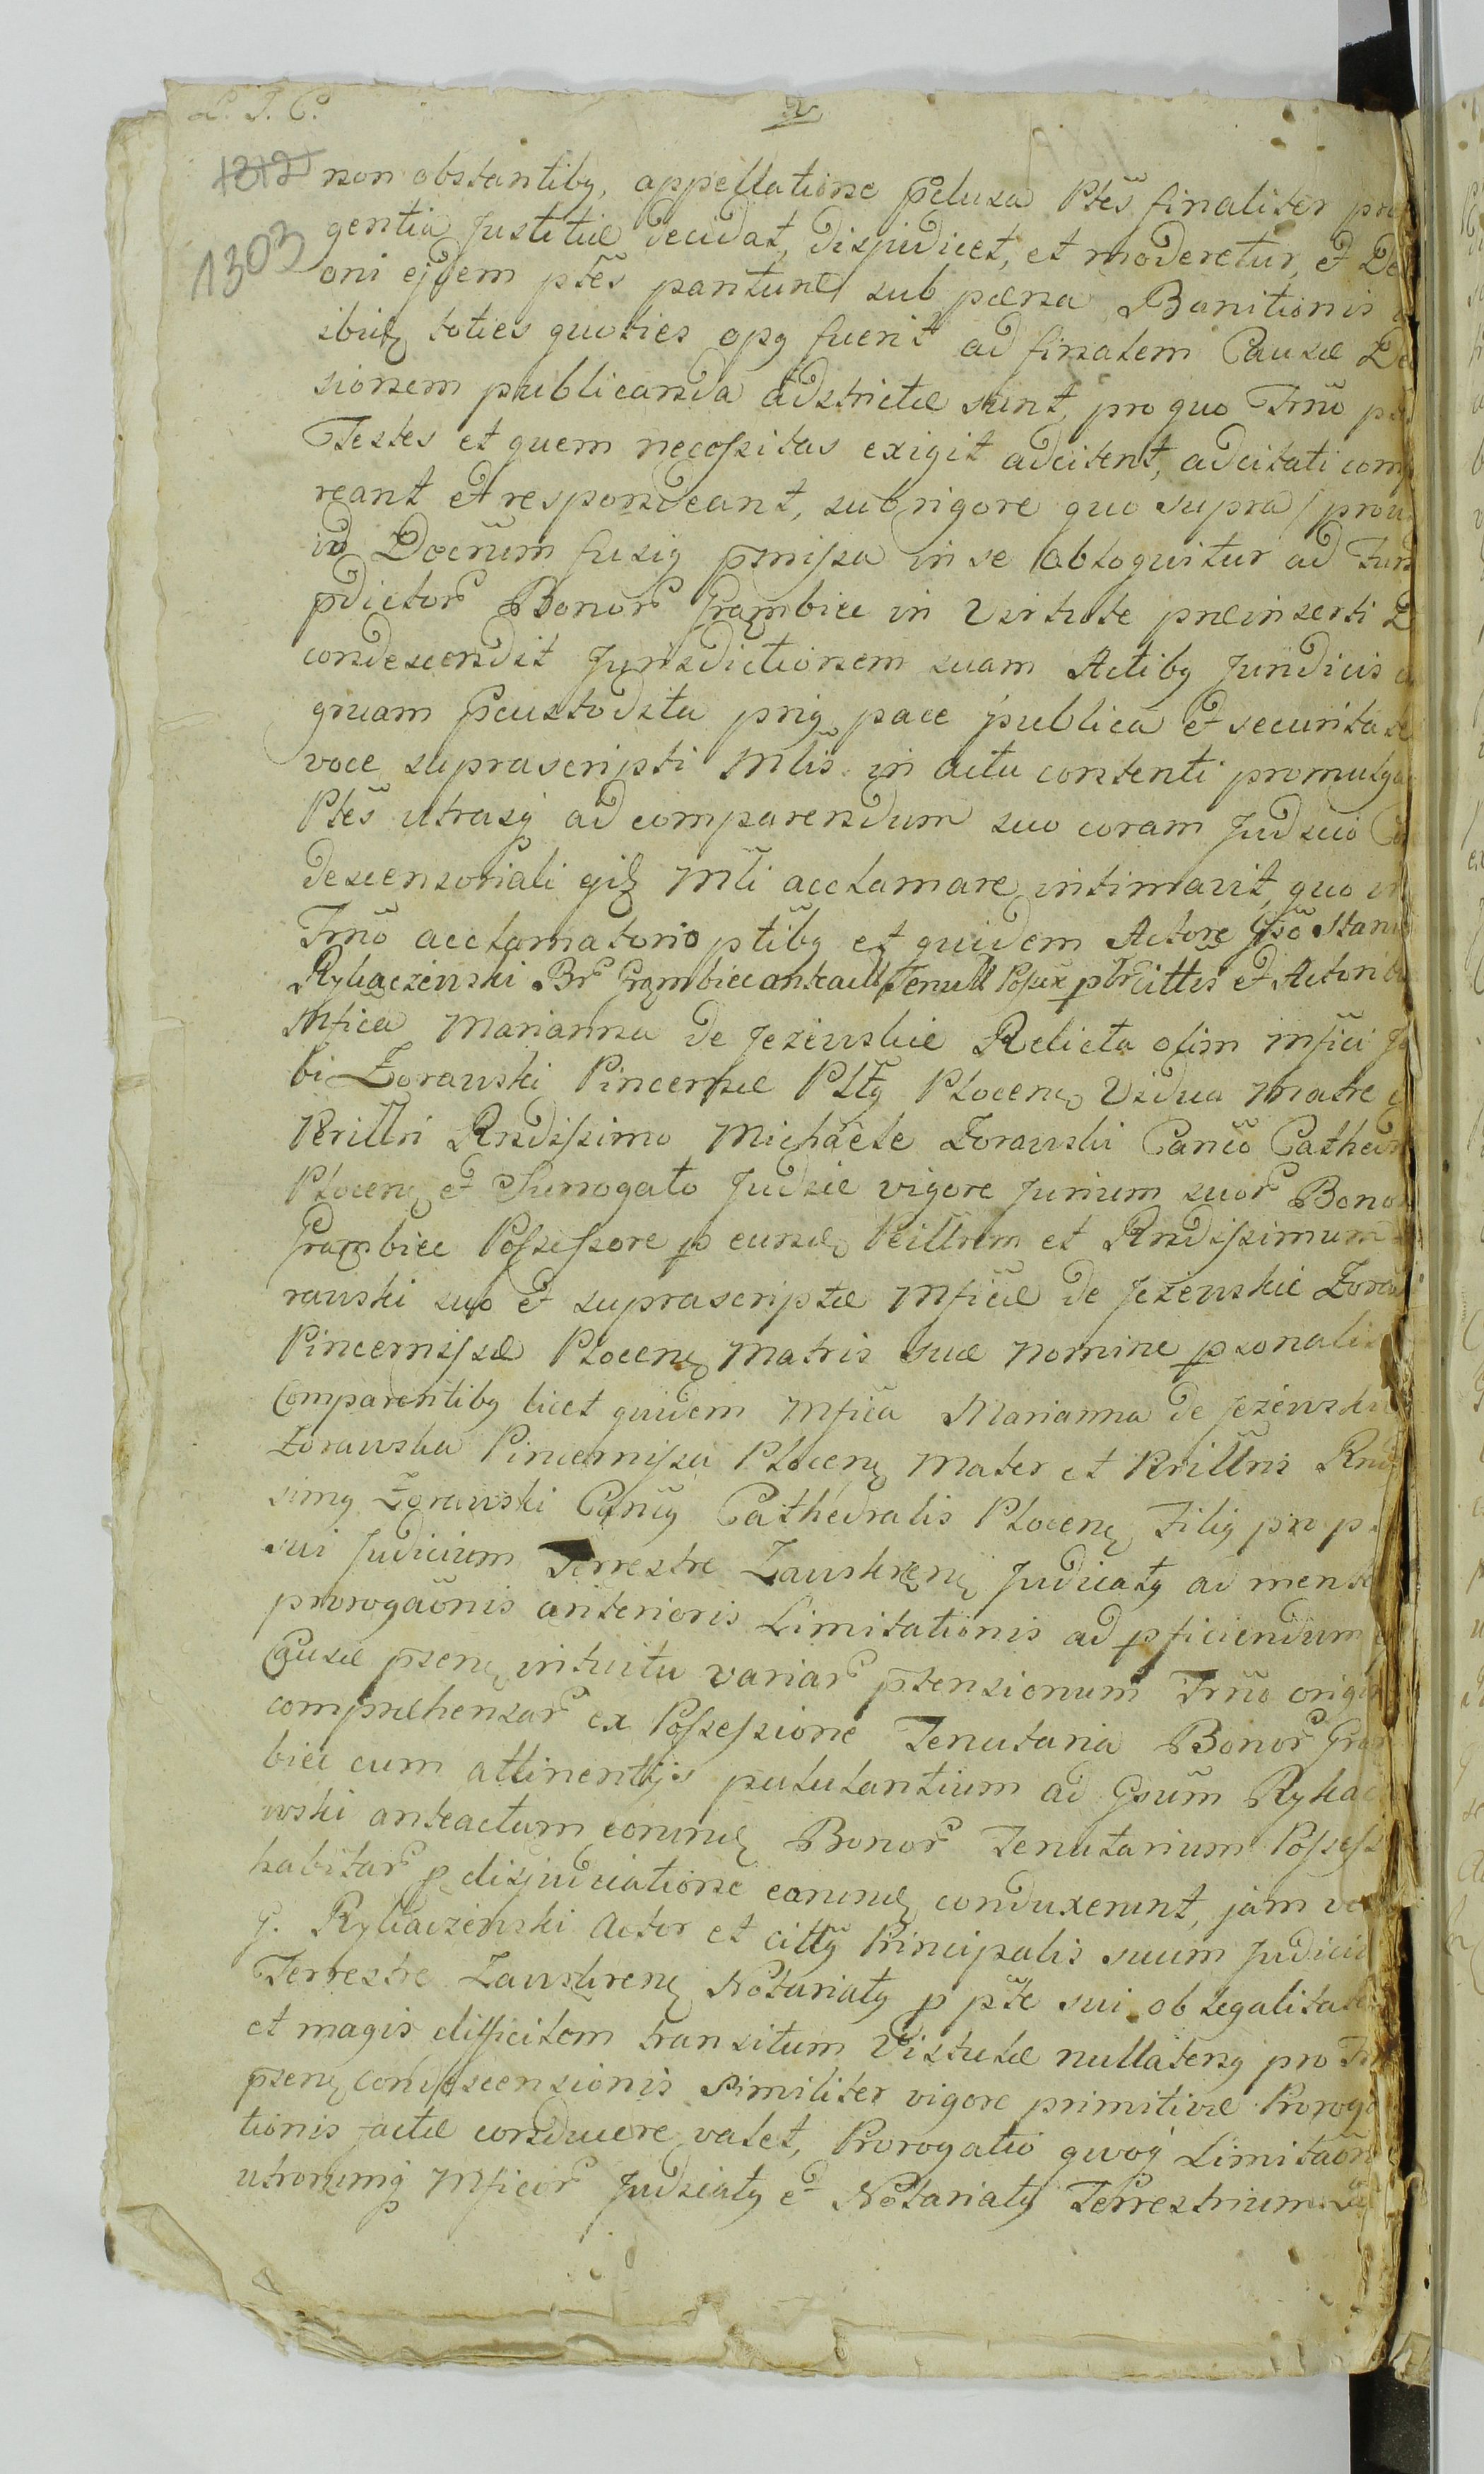 L. J. C.
1312
1303
non obstantiby, appellatione pclusa Ptes finaliter
gentia Justitiæ decidat, disjudicet, et moderetur, et De
oni ejdem ptes pareant sub pæna Banitionis
ibidę toties quoties opg fuerit ad finalem Causæ De
sionem publicanda adstrictæ sunt, pro quo Trno
Testes et quem necessitas exigit adcitent, adcitati comp
reant et respondeant, sub rigore quo supra / prou
id Docrum fusig pmissa in se obloquitur ad Fun
pdictor Bonor Grąmbice in Virtute præinserti D
condescendit Jurisdictionem suam Actiby Juridicis
gruam pcustodita prig pace publica et securitate
voce suprascripti Mlis in actu contenti promulga
Ptes utrasq ad comparendum suo coram Judicio Con
descensoriali ejdę Mli acclamare intimavit, quo in
Trno acclamatorio ptiby et quidem Actore Gso Stanis
Rykaczewski Br Grąmbice anteact Tenut Possre pr Cittis et Actori
Mfica Marianna de Jeżewskie Relicta olim Mfici
bi Żorawski Pincernæ Pltg Plocenę Vidua Matre
Perillri Rndissimo Michaele Żorawski Canco Cathedr
Plocenę et Surrogato Judice vigore Jurium suor Bonor
Grąmbice Possessore p eundę Peillrem et Rndissimum
rawski suo et suprascriptæ Mficæ de Jeżewskie Żoraw
Pincernissæ Plocenę Matris suæ nomine psonali
Comparentiby licet quidem Mfica Marianna de Jeżewskie
Żorawska Pincernissa Plocenę Mater et Prillris Rndis
simg Żorawski Cancg Cathedralis Plocenę Filig pro p
sui Judicium Terrestre Zawskrenę Judicatg ad mentem
prorogaonis anterioris Limitationis ad pficiendum
Causæ psenę intuitu variar ptensionum Trno origin
comprehensar ex Possessione Tenutaria Bonor Grąm
bice cum attinentijs pululantium ad Gsum Rykacz
wski anteactum eorundę Bonor Tenutarium Possess
habitar p disjudicatione earundę conduxerunt, jam vero
G. Rykaczewski Actor et cittg Principalis suum Judiciu
Terrestre Zawskrenę Notariatg p pte sui ob legalitate
et magis difficilem transitum Vistulæ nullatensg pro Trno
psenę condescensionis similiter vigore primitivæ Proroga
tionis factæ conducere valet, Prorogatio quoq Limitaon
utrorumq Mficor Judiciatg et Notariatg Terrestrium